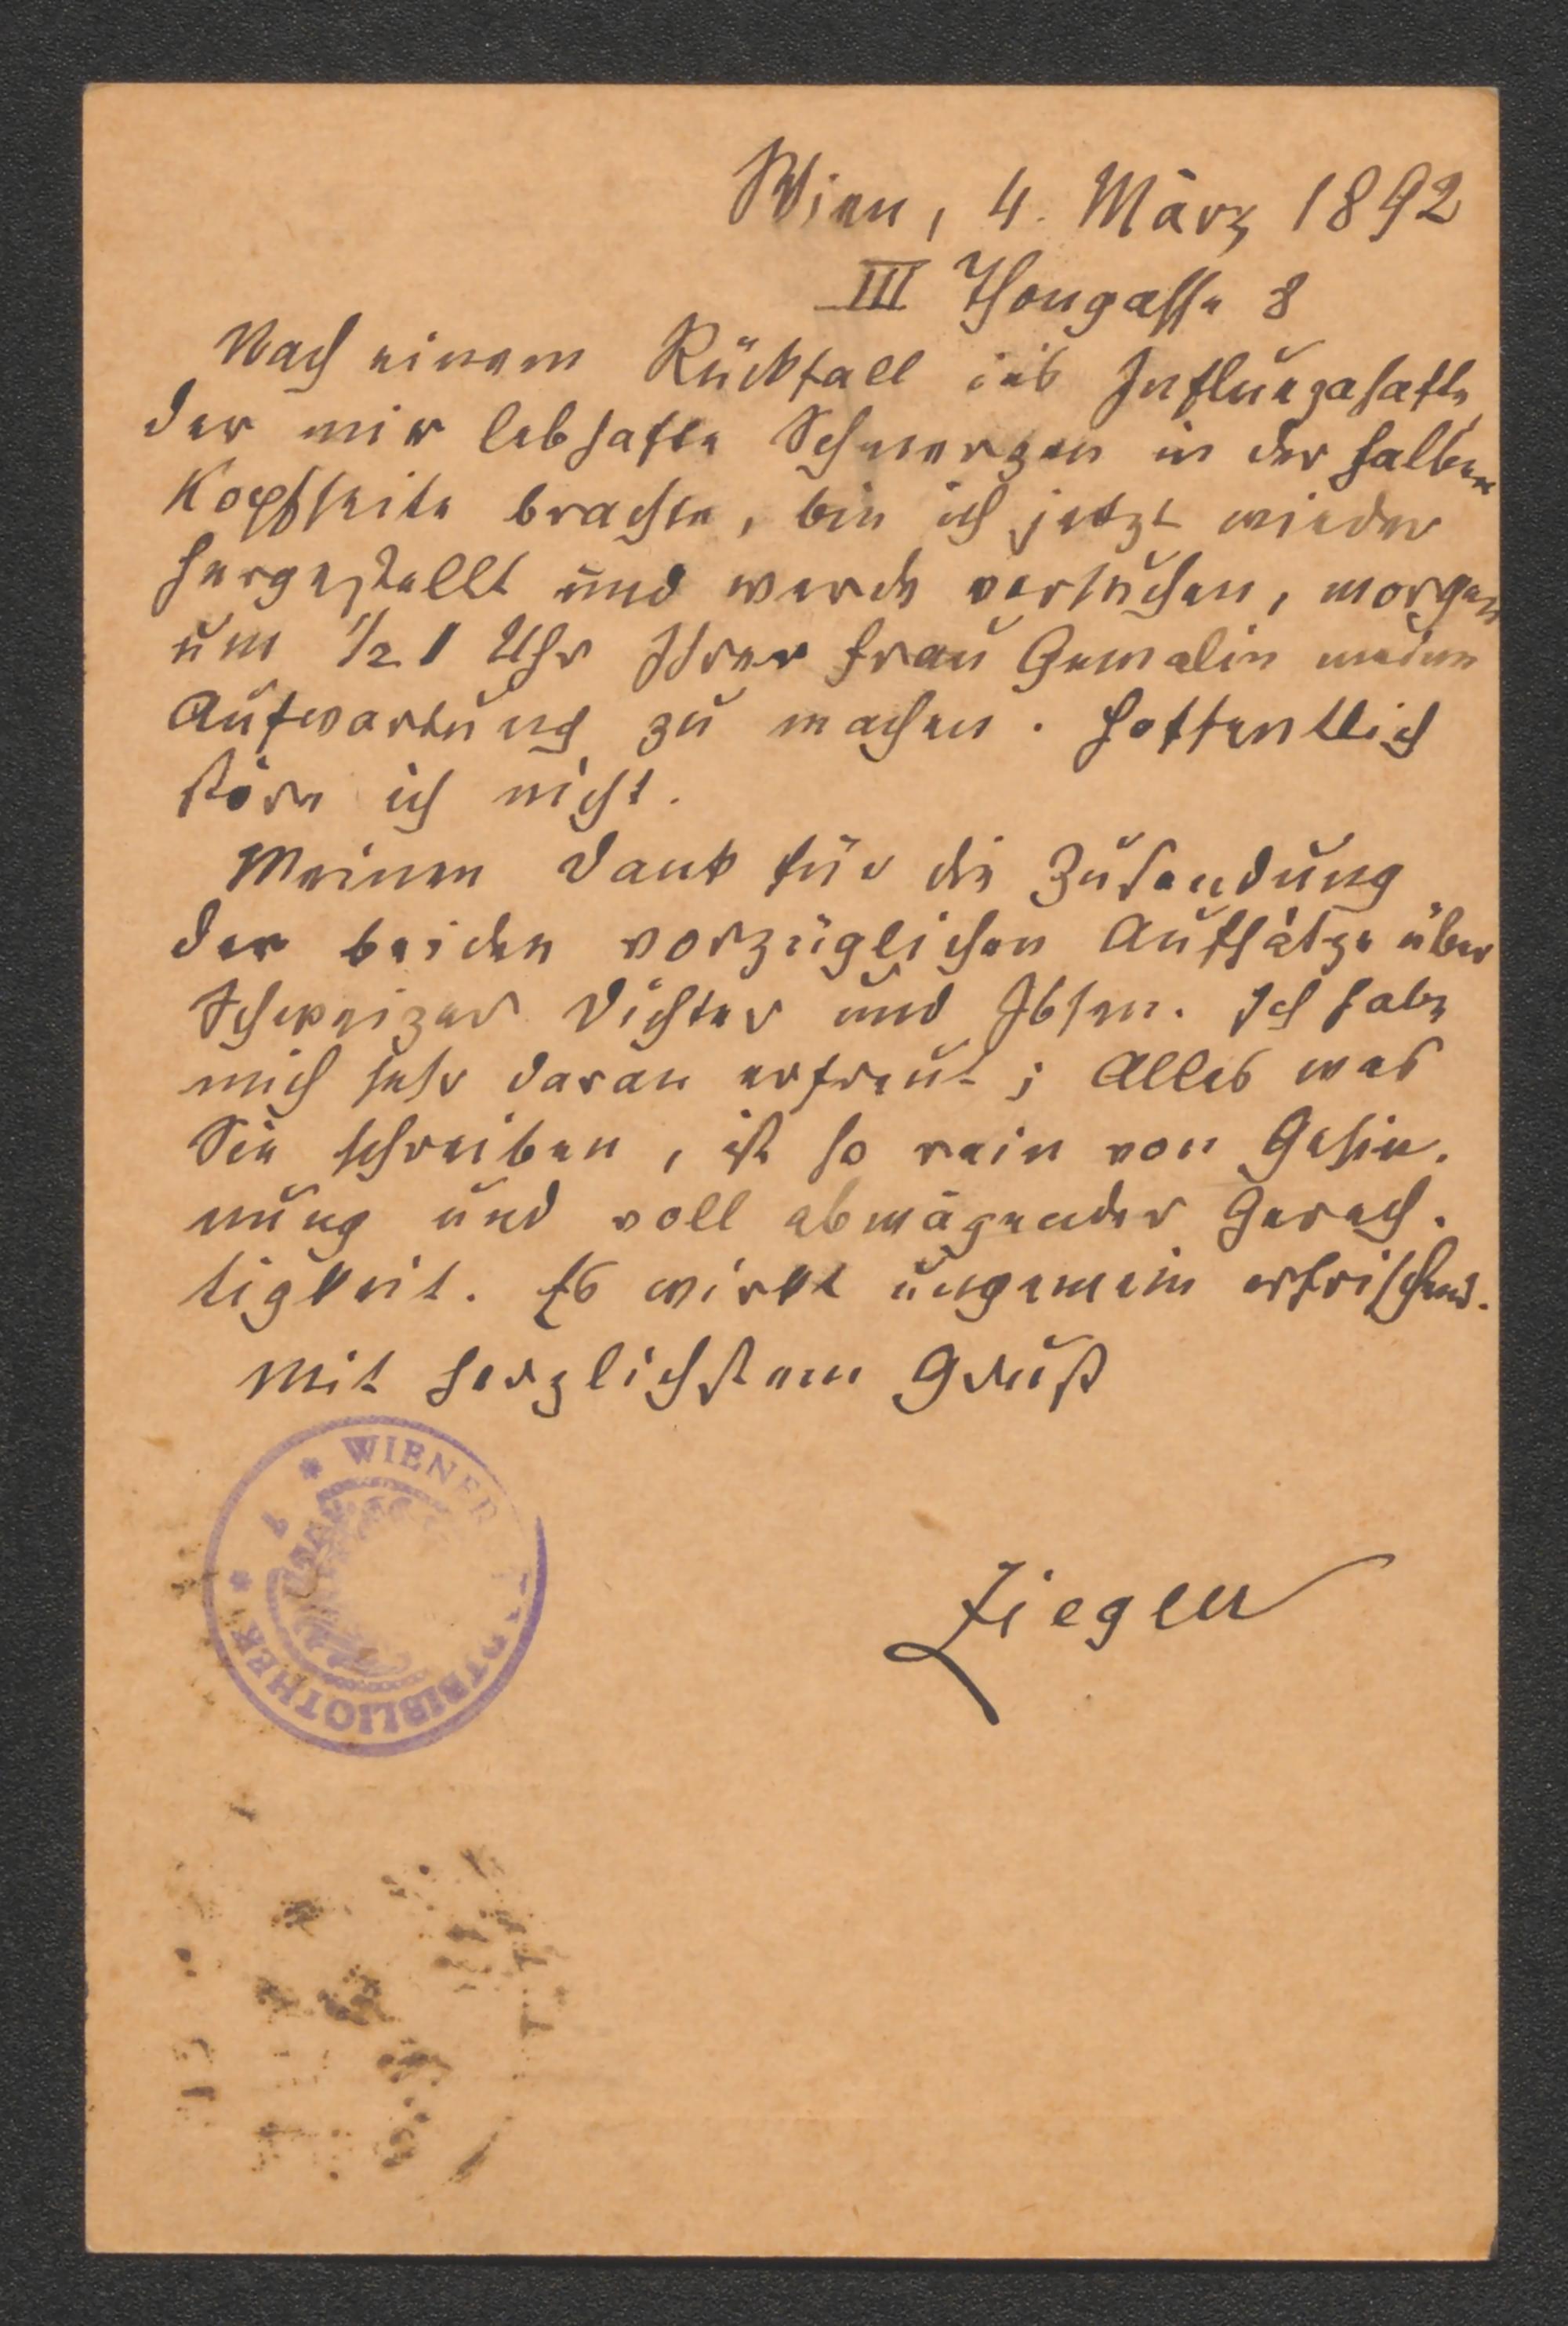 Wien, 4. März 1892
III Thongasse 8
Nach einem Rückfall ins Influenzahafte,
der mir lebhafte Schmerzen in der halben
Kopfseite brachte, bin ich jetzt wieder
hergestellt und werde versuchen, morgen
um 1/2 1 Uhr Ihrer Frau Gemalin meine
Aufwartung zu machen. Hoffentlich
störe ich nicht.
Meinen Dank für die Zusendung
der beiden vorzüglichen Aufsätze über
Schweizer Dichter und Ibsen. Ich habe
mich sehr daran erfreut; Alles was
Sie schreiben, ist so rein von Gesin-
nung und voll abwägender Gerech-
tigkeit. Es wirkt ungemein erfrischend.
Mit herzlichstem Gruß
WIENER
BIBLIOTHEK
Ziegler